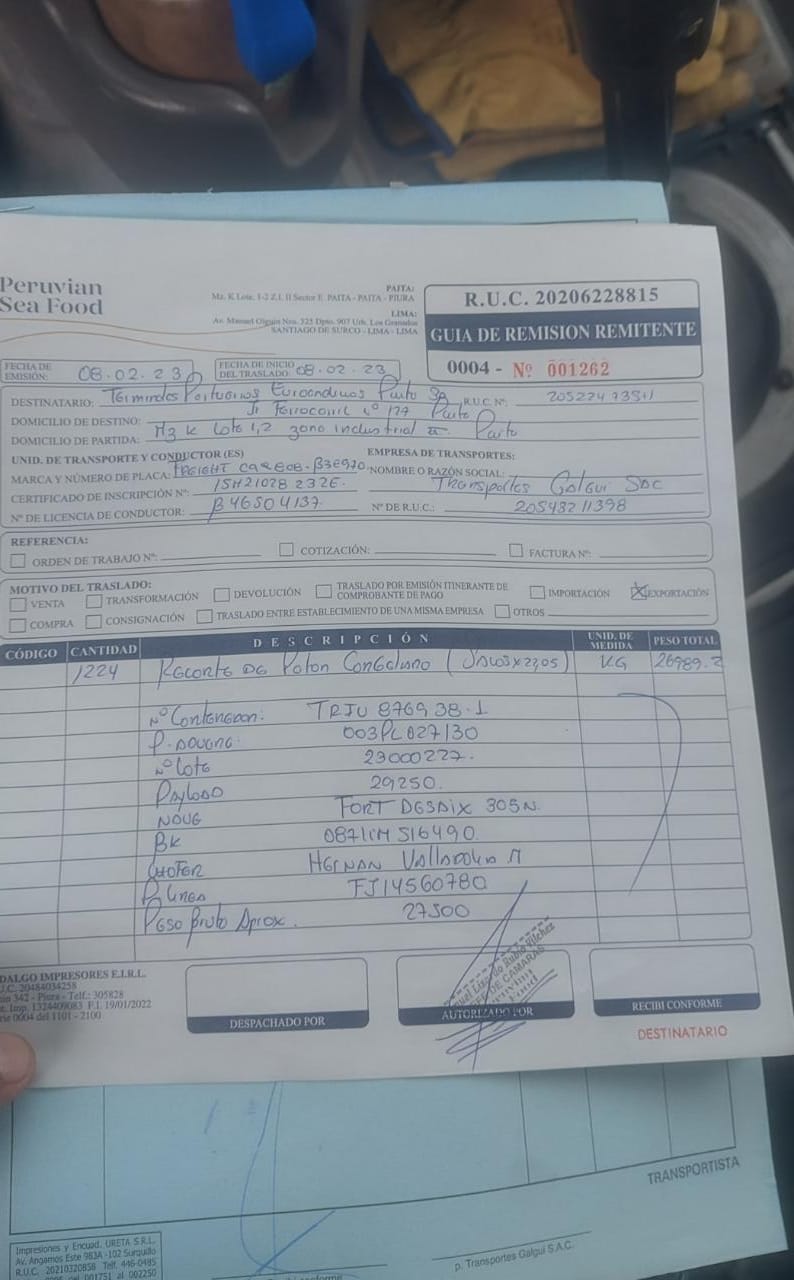 Peruvian
Sea Food
PAITA:
Mz. K Lote. 1-2 Z.I. II Sector E PAITA - PAITA - PIURA
LIMA:
Av. Manuel Olguin Nro. 325 Dpto. 907 Urb. Los Granados
SANTIAGO DE SURCO - LIMA - LIMA
R.U.C. 20206228815
GUIA DE REMISION REMITENTE
0004 - Nº 001262
FECHA DE EMISIÓN: 08.02.23
FECHA DE INICIO DEL TRASLADO: 08.02.23
DESTINATARIO: Terminales Portuarios Euroandinos Paita SA R.U.C. Nº:
DOMICILIO DE DESTINO: Jr Ferrocarril nº 127 Paita
DOMICILIO DE PARTIDA: Mz K Lote 1,2 zona industrial II Paita
UNID. DE TRANSPORTE Y CONDUCTOR (ES)
EMPRESA DE TRANSPORTES:
MARCA Y NÚMERO DE PLACA: FREIGHT
NOMBRE O RAZÓN SOCIAL: Transportes Galgui SAC
CERTIFICADO DE INSCRIPCIÓN Nº: 15M21028 232E.
Nº DE LICENCIA DE CONDUCTOR: B46504137
Nº DE R.U.C.: 20543211398
REFERENCIA:
ORDEN DE TRABAJO Nº: COTIZACIÓN: FACTURA Nº:
MOTIVO DEL TRASLADO:
VENTA TRANSFORMACIÓN DEVOLUCIÓN TRASLADO POR EMISIÓN ITINERANTE DE COMPROBANTE DE PAGO IMPORTACIÓN EXPORTACIÓN
COMPRA CONSIGNACIÓN TRASLADO ENTRE ESTABLECIMIENTO DE UNA MISMA EMPRESA OTROS
CÓDIGO CANTIDAD DESCRIPCIÓN UNID. DE MEDIDA PESO TOTAL
1224 Recorte de Poton Congelado (Sacos x 22,05) KG 26989.2
Nº Contenedor: TRIU 876938-1
P. ADUANA: 003PL827130
Nº Lote 23000227.
Payload 29250.
NAVE FORT DESAIX 305N.
BK 0871IM516490.
CHOFER HERNAN
P. Linea FJ14560780
Peso Bruto Aprox. 27500
DALGO IMPRESORES E.I.R.L.
U.C. 20484034258
342 - Piura - Telf.: 305828
t. Imp. 1324409083 F.I. 19/01/2022
rie 0004 del 1101 - 2100
DESPACHADO POR
Lizardo Rubio Vilchez
JEFE DE CAMARAS
AUTORIZADO POR
RECIBI CONFORME
DESTINATARIO
TRANSPORTISTA
Impresiones y Encuad. URETA S.R.L.
Av. Angamos Este 983A -102 Surquillo
R.U.C. 20210320858 Telf. 446-0485
001751 al 002250
p. Transportes Galgui S.A.C.